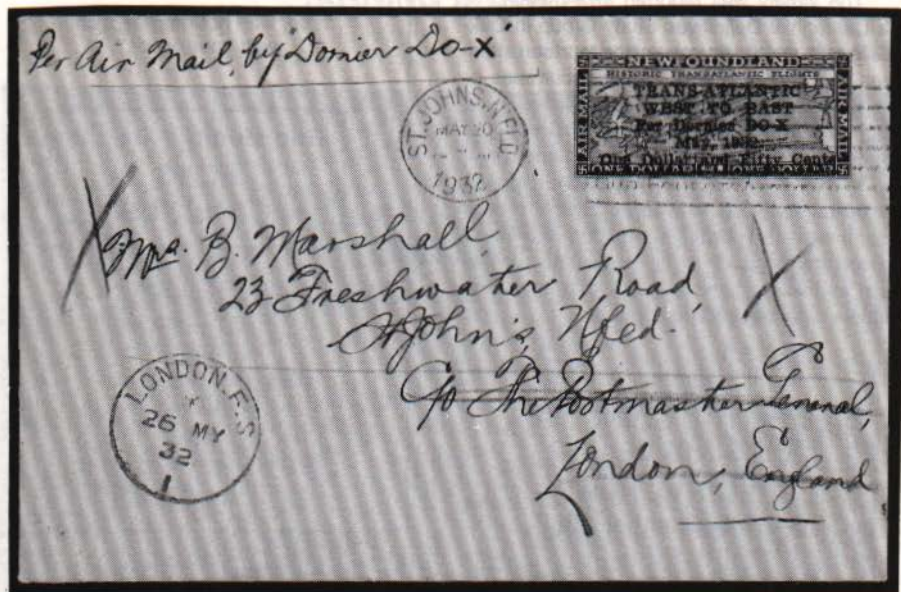 Per Air Mail, by "Dornier Do-X"
NEWFOUNDLAND
HISTORIC TRANSATLANTIC FLIGHTS
AIR MAIL
AIR MAIL
TRANS-ATLANTIC
WEST TO EAST
Per Dornier DO-X
May, 1932.
One Dollar and Fifty Cents
ONE DOLLAR
ONE DOLLAR
ST. JOHN'S, NFLD
MAY 20
1932
Mrs. B. Marshall,
23 Freshwater Road,
St John's, Nfld.
c/o The Postmaster General,
London, England
LONDON. F.S
26 MY
32